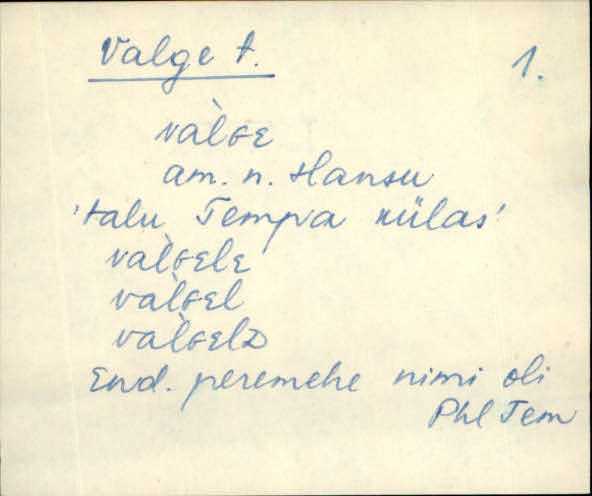 Valge t. 1.
vàlɢᴇ
am. n. Hansu
'talu Tempa külas'
vàlɢᴇlᴇ
vàlɢᴇl
vàlɢᴇlᴅ
End. peremehe nimi oli
Phl Tem